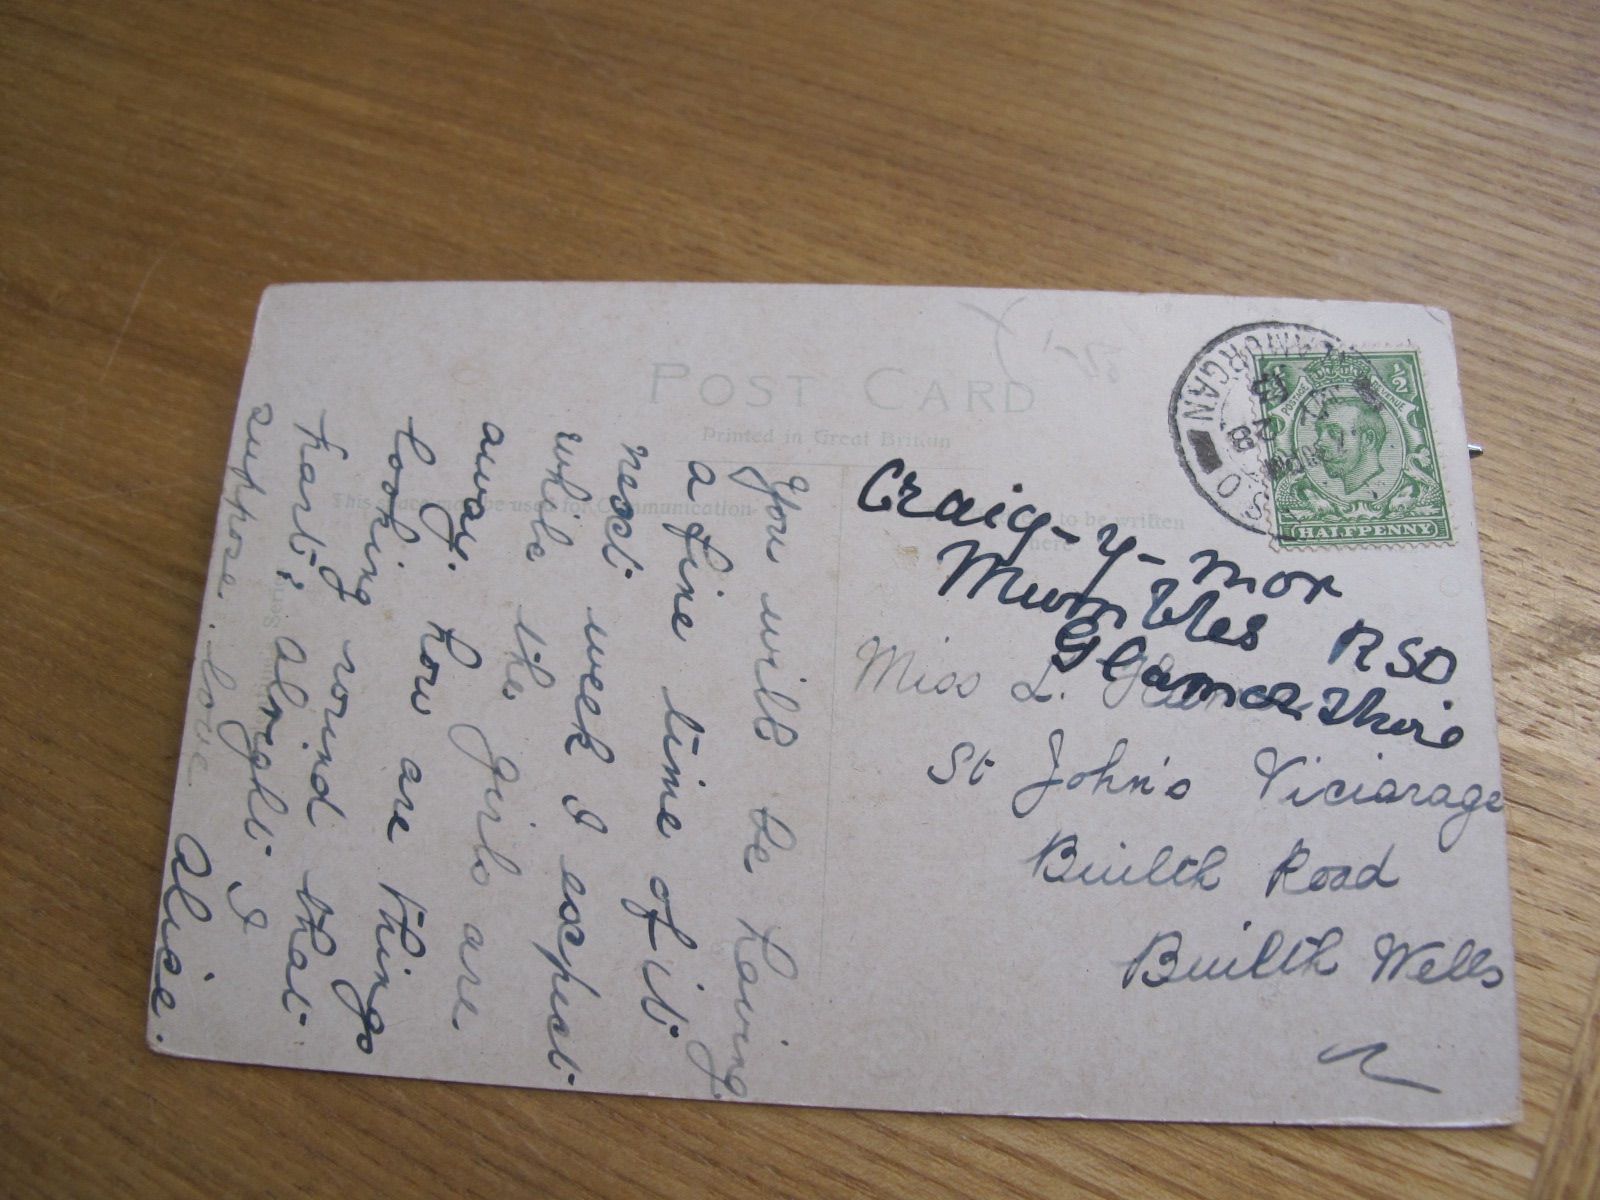 POST CARD
Printed in Great Britain
This space may be used for Communication
to be written
here
You will be having
a fine time of it
next week I expect
while the girls are
away. how are things
looking round that
part? alright I
suppose. love Alice.
Craig-y-mor
Mumbles RSO
Miss L.
St John's Viciarage
Builth Road
Builth Wells
S.O
POSTAGE
REVENUE
1/2
HALFPENNY